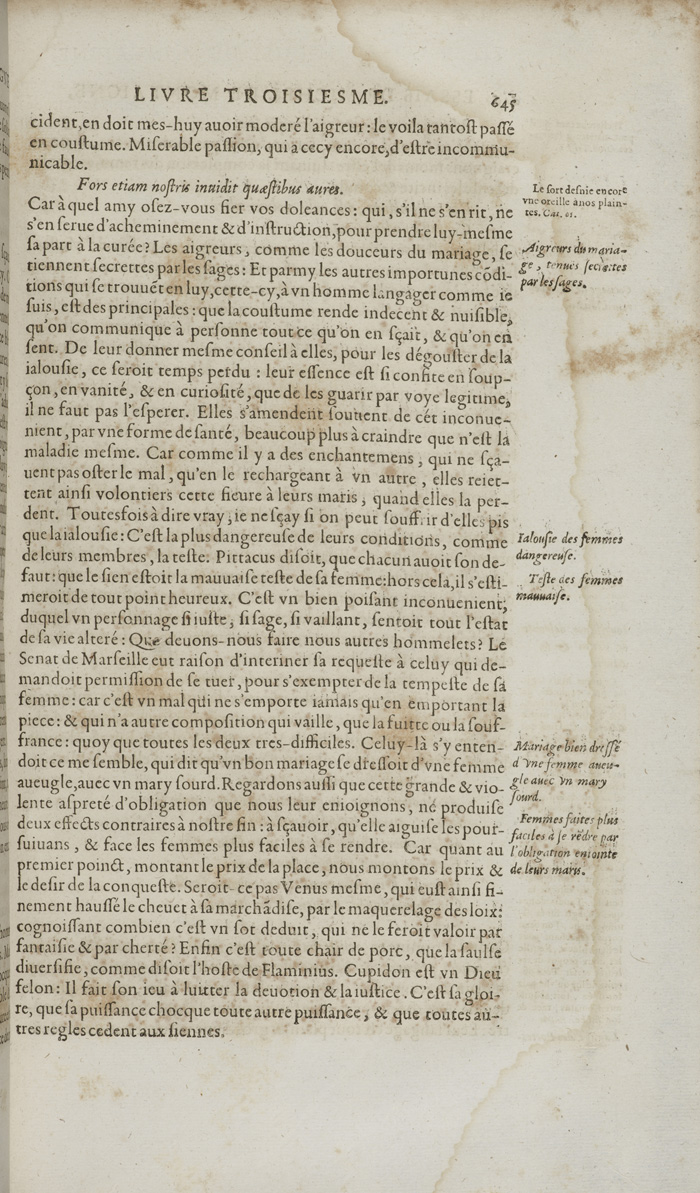 LIVRE TROISIESME. 645
cident, en doit mes-huy auoir moderé l'aigreur: le voila tantost passé
en coustume. Miserable passion, qui a cecy encore, d'estre incommu-
nicable.
Fors etiam nostris inuidit quæstibus aures.
Le sort desnie encore
vne oreille à nos plain-
tes. Cat. 61.
Car à quel amy osez-vous fier vos doleances: qui, s'il ne s'en rit, ne
s'en serue d'acheminement & d'instruction, pour prendre luy-mesme
sa part à la curée? Les aigreurs, comme les douceurs du mariage, se
tiennent secrettes par les sages: Et parmy les autres importunes cõdi-
tions qui se trouuẽt en luy, cette-cy, à vn homme langager comme ie
suis, est des principales: que la coustume rende indecent & nuisible,
qu'on communique à personne tout ce qu'on en sçait, & qu'on en
sent. De leur donner mesme conseil à elles, pour les dégouster de la
Aigreurs du maria-
ge, tenues secretes
par les sages.
ialousie, ce seroit temps perdu : leur essence est si confite en soup-
çon, en vanité, & en curiosité, que de les guarir par voye legitime,
il ne faut pas l'esperer. Elles s'amendent souuent de cét inconue-
nient, par vne forme de santé, beaucoup plus à craindre que n'est la
maladie mesme. Car comme il y a des enchantemens, qui ne sça-
uent pas oster le mal, qu'en le rechargeant à vn autre, elles reiet-
tent ainsi volontiers cette fieure à leurs maris, quand elles la per-
dent. Toutesfois à dire vray, ie ne sçay si on peut souffrir d'elles pis
que la ialousie: C'est la plus dangereuse de leurs conditions, comme
de leurs membres, la teste. Pittacus disoit, que chacun auoit son de-
Ialousie des femmes
dangereuse.
faut: que le sien estoit la mauuaise teste de sa femme: hors cela, il s'esti-
meroit de tout point heureux. C'est vn bien poisant inconuenient,
Teste des femmes
mauuaise.
duquel vn personnage si iuste, si sage, si vaillant, sentoit tout l'estat
de sa vie alteré: Que deuons-nous faire nous autres hommelets? Le
Senat de Marseille eut raison d'interiner sa requeste à celuy qui de-
mandoit permission de se tuer, pour s'exempter de la tempeste de sa
femme: car c'est vn mal qui ne s'emporte iamais qu'en emportant la
piece: & qui n'a autre composition qui vaille, que la fuitte ou la souf-
france: quoy que toutes les deux tres-difficiles. Celuy-là s'y enten-
doit ce me semble, qui dit qu'vn bon mariage se dressoit d'vne femme
aueugle, auec vn mary sourd. Regardons aussi que cette grande & vio-
lente aspreté d'obligation que nous leur enioignons, ne produise
Mariage bien dressé
d'vne femme aueu-
gle auec vn mary
sourd.
deux effects contraires à nostre fin: à sçauoir, qu'elle aiguise les pour-
suiuans, & face les femmes plus faciles à se rendre. Car quant au
premier poinct, montant le prix de la place, nous montons le prix &
le desir de la conqueste. Seroit-ce pas Venus mesme, qui eust ainsi fi-
Femmes faites plus
faciles à se rẽdre par
l'obligation eniointe
de leurs maris.
nement haussé le cheuet à sa marchãdise, par le maquerelage des loix:
cognoissant combien c'est vn sot deduit, qui ne le feroit valoir par
fantaisie & par cherté? Enfin c'est toute chair de porc, que la saulse
diuersifie, comme disoit l'hoste de Flaminius. Cupidon est vn Dieu
felon: Il fait son ieu à luitter la deuotion & la iustice. C'est sa gloi-
re, que sa puissance chocque toute autre puissance, & que toutes au-
tres regles cedent aux siennes.